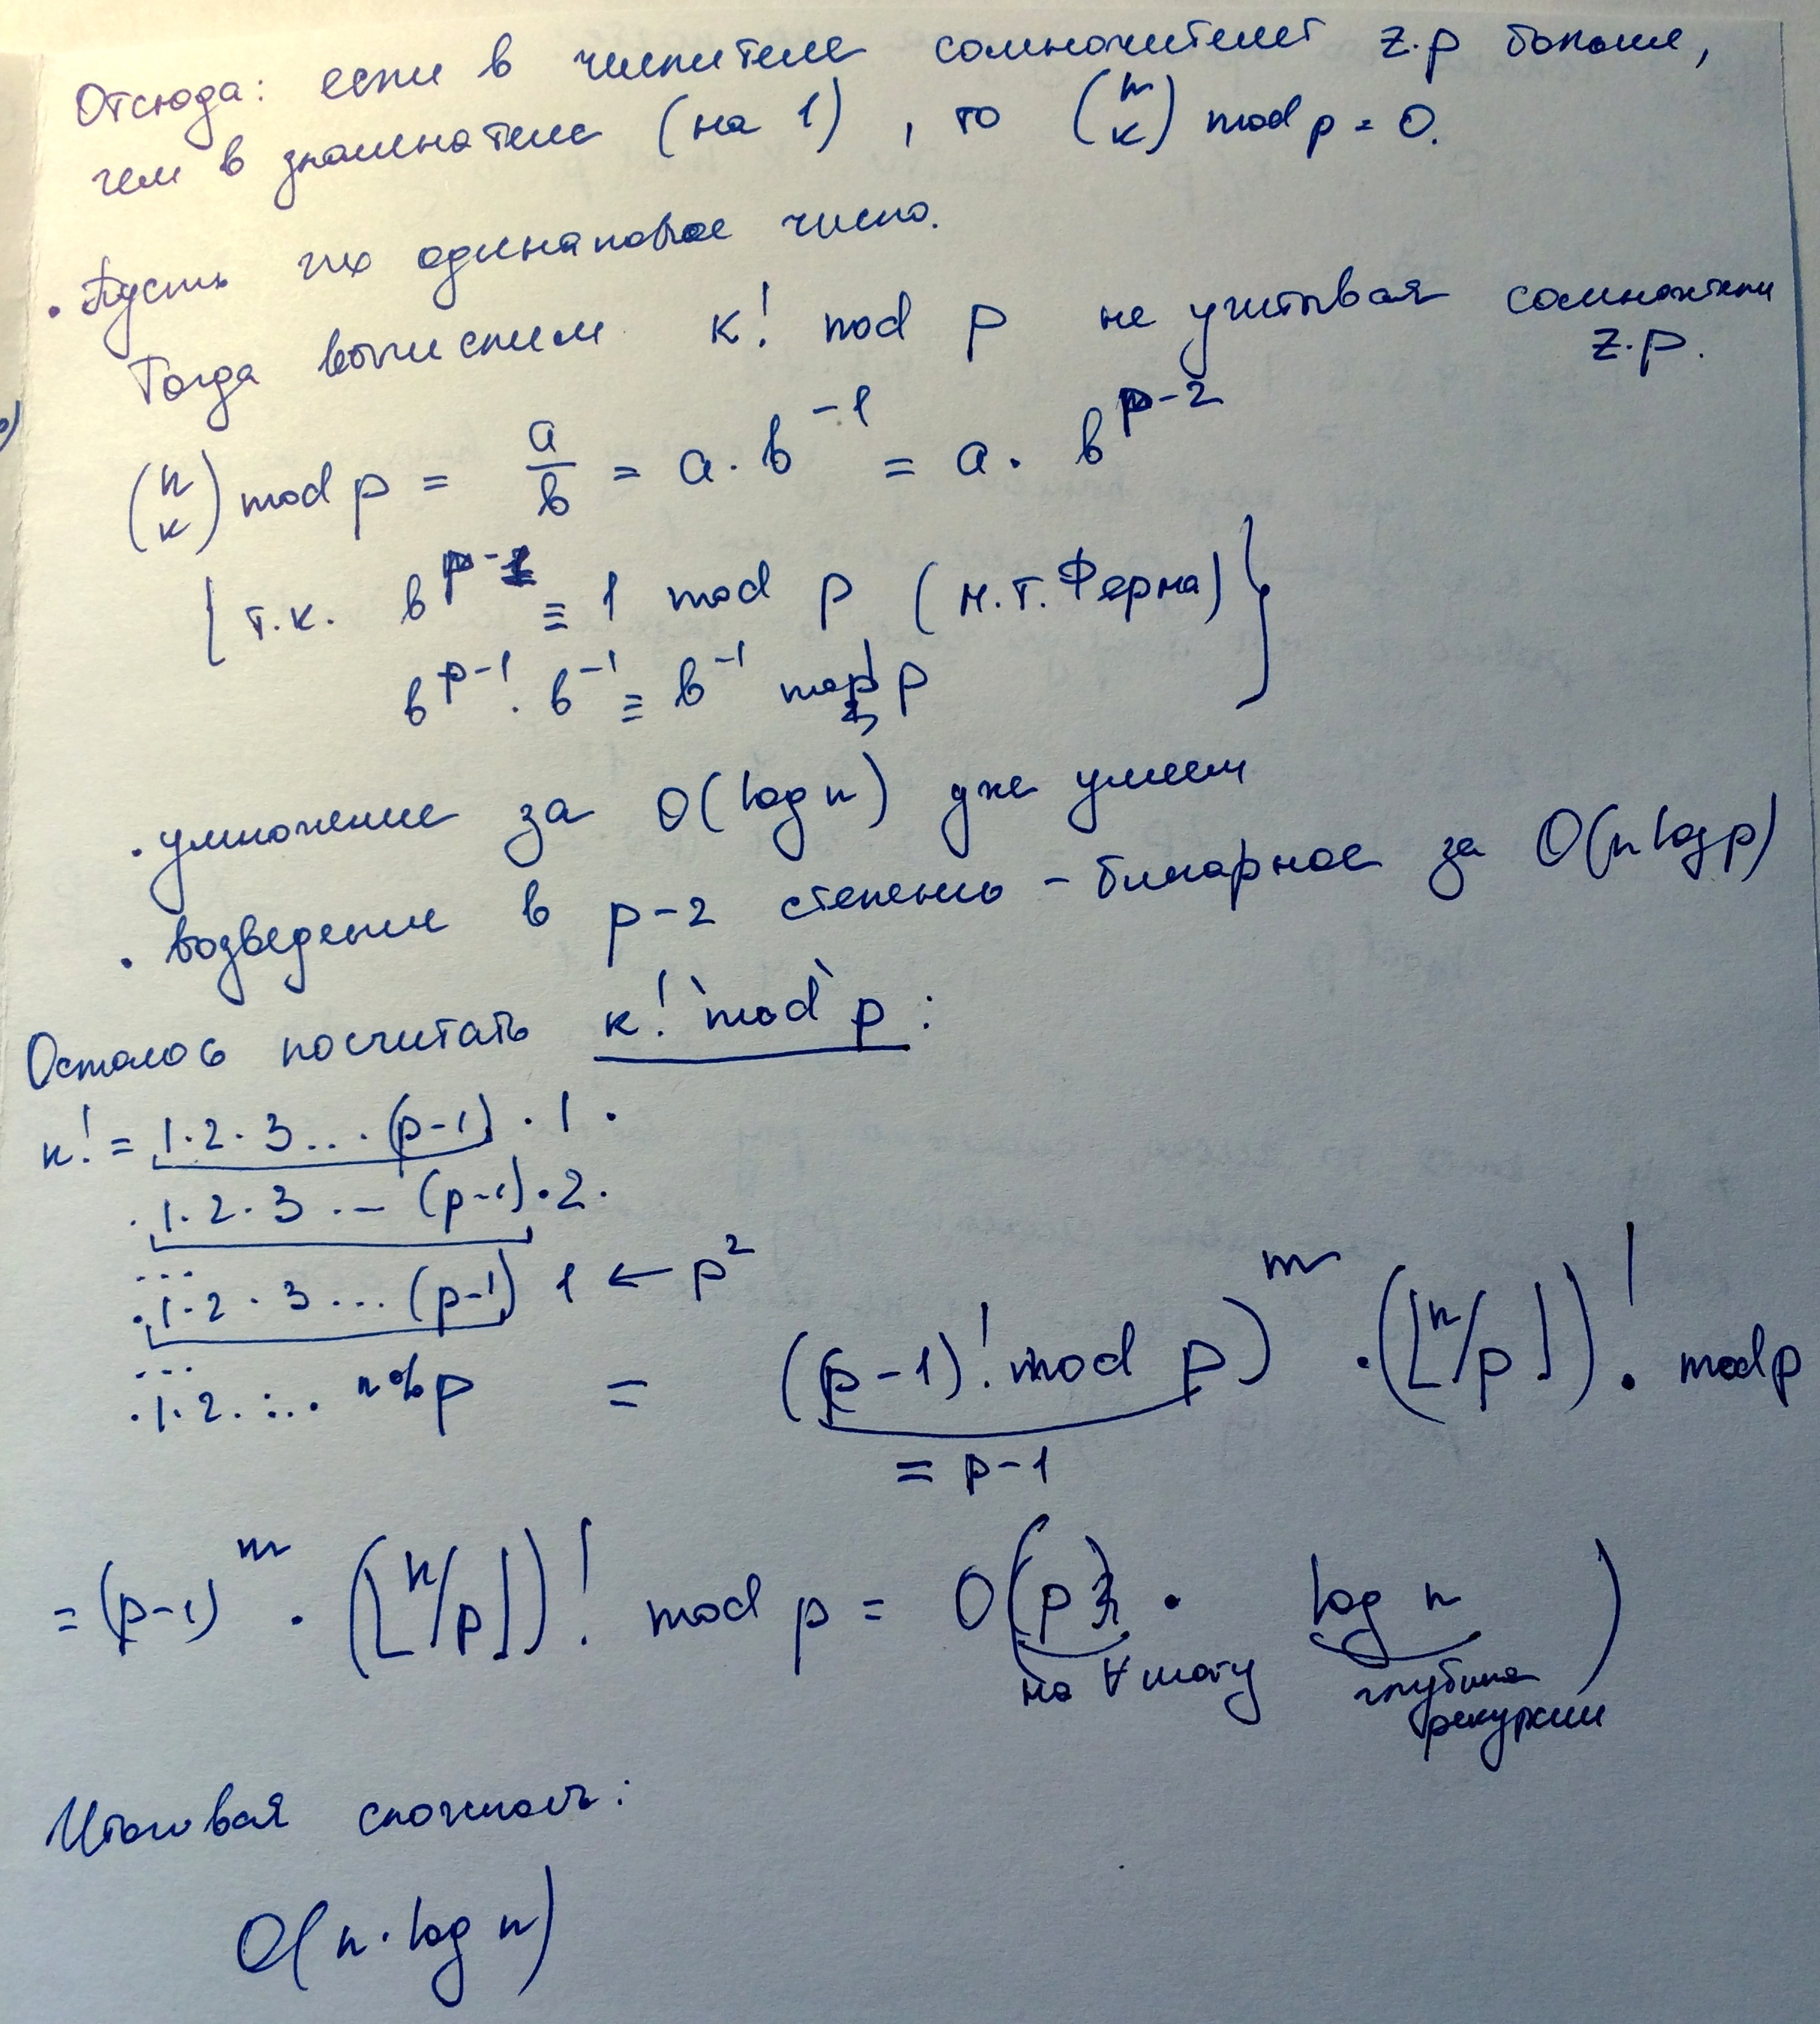 Отсюда: если в числителе сомножителей z·p больше,
чем в знаменателе (на 1), то (n k) mod p = 0.
• Пусть их одинаковое число.
Тогда вычислим k! mod p не учитывая сомножители
z·p.
(n k) mod p = a/b = a · b^-1 = a · b^p-2
[т.к. b^p-1 ≡ 1 mod p (м.т. Ферма)}
b^p-1 · b^-1 ≡ b^-1 mod p
• умножение за O(log n) уже умеем
• возведение в p-2 степень - бинарное за O(n log p)
Осталось посчитать k! `mod` p:
k! = 1·2·3...·(p-1)·1·
·1·2·3·...(p-1)·2·
...
·1·2·3...(p-1) 1 ← p²
...
·1·2·... n%p = ((p-1)! mod p)^m · (⌊n/p⌋)! · mod p
= p-1
= (p-1)^m · (⌊n/p⌋)! mod p = O(p · log n)
на ∀ шагу глубина
рекурсии
Итоговая сложность:
O(n·log n)